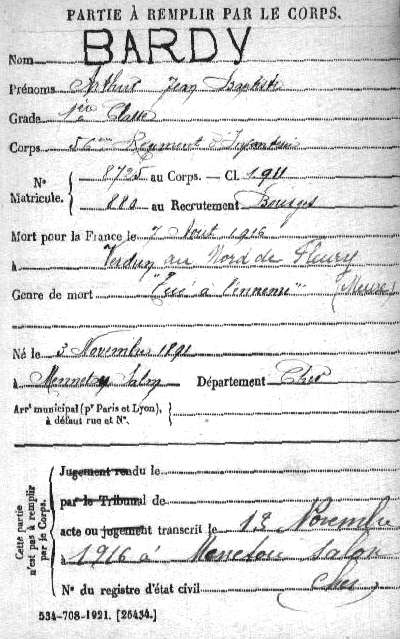 PARTIE À REMPLIR PAR LE CORPS.
Nom BARDY
Prénoms Arthur Jean Baptiste
Grade 1ère Classe
Corps 56ème Régiment d'Infanterie
N° Matricule. { 8725 au Corps. — Cl. 1911
880 au Recrutement Bourges
Mort pour la France le 7 Aout 1916
à Verdun au Nord de Fleury
Genre de mort "Tué à l'ennemi" (Meuse)
Né le 3 Novembre 1891
à Menneto Salon Département Cher
Arrt municipal (pr Paris et Lyon), à défaut rue et N°. {
Cette partie n'est pas à remplir par le Corps.
Jugement rendu le
par le Tribunal de
acte ou jugement transcrit le 12 Novembre
à 1916 à Menetou Salon
N° du registre d'état civil (Cher)
534-708-1921. [26434.]